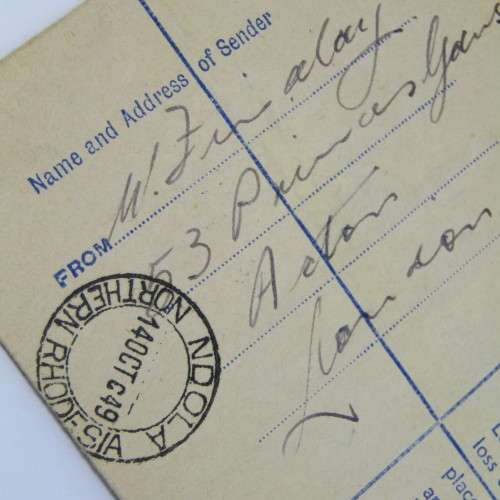 Name and Address of Sender
FROM W. Finalay
53 Princes Gans
Acton
London
NDOLA NORTHERN RHODESIA
14 OCT 49
loss
place